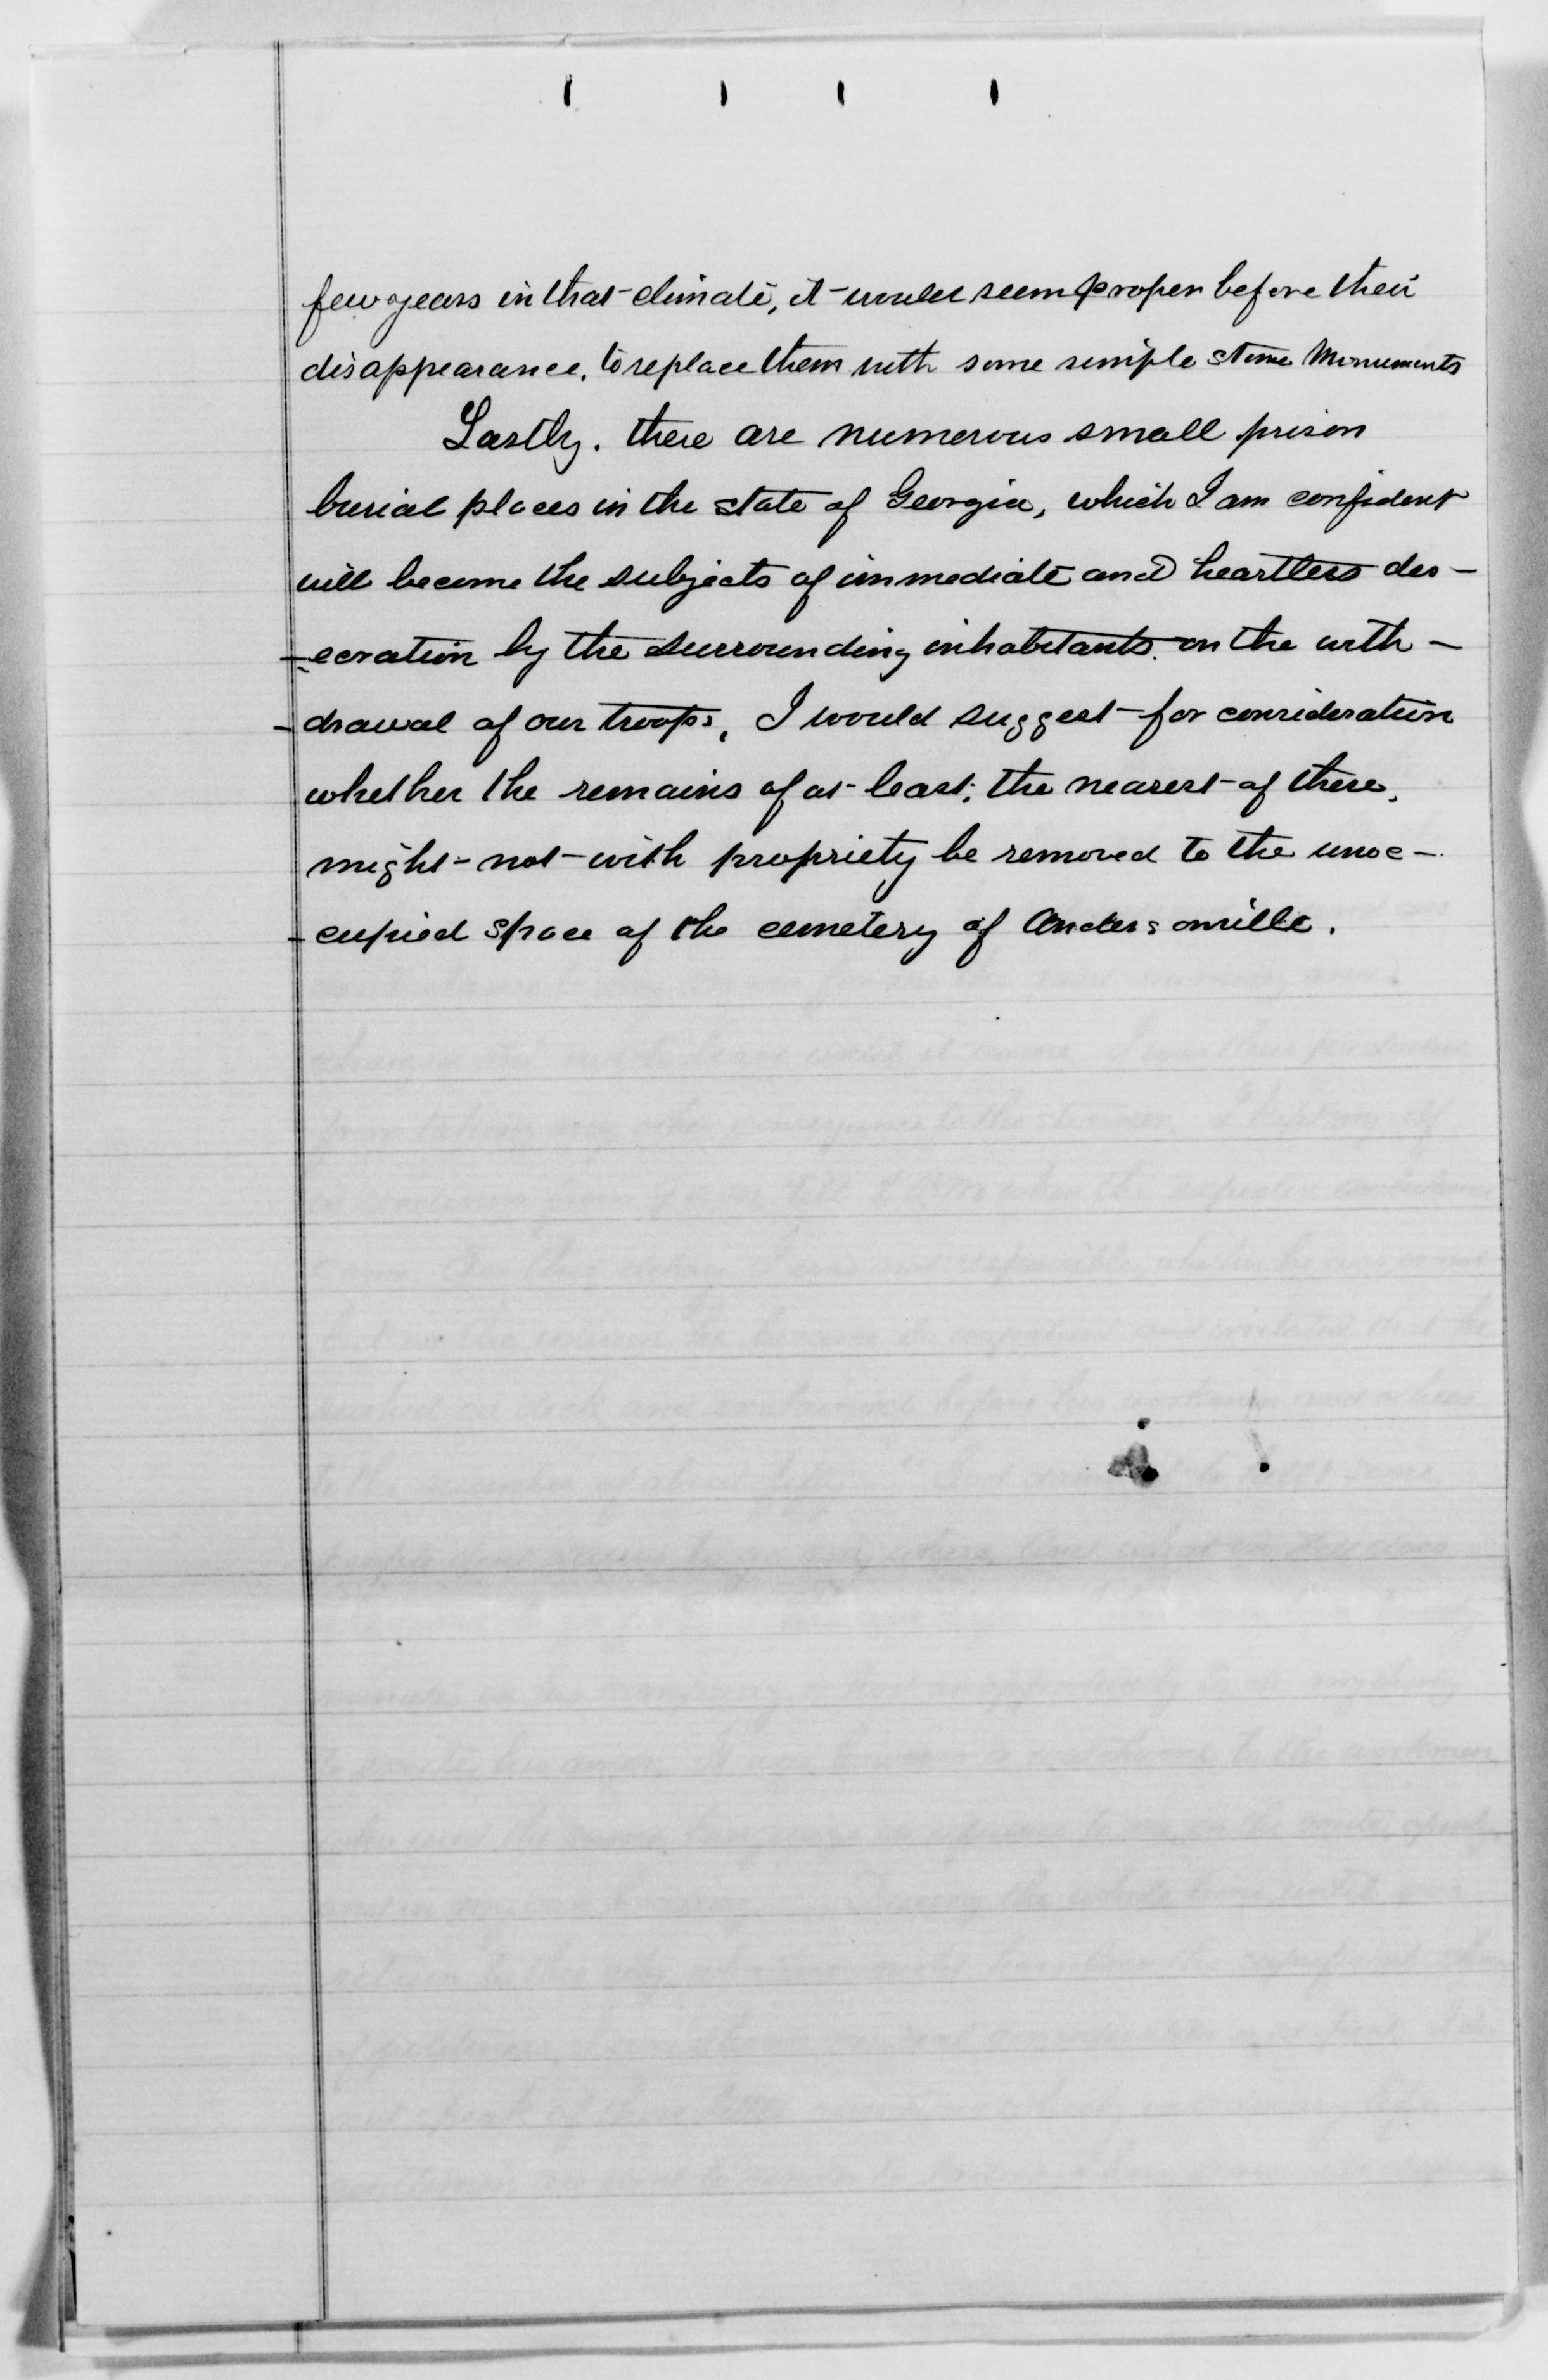 few years in that climate, it would seem proper before their
disappearance, to replace them with some simple stone Monuments
Lastly. there are numerous small prison
burial places in the state of Georgia, which I am confident
will become the subjects of immediate and heartless des-
-ecration by the surrounding inhabitants. on the with-
-drawal of our troops, I would suggest for consideration
whether the remains of at least, the nearest of these,
might not with propriety be removed to the unoc-
-cupied space of the cemetery of Andersonville.